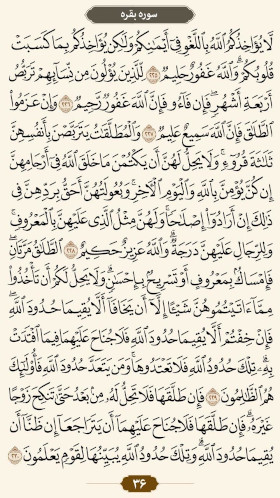 سوره بقره
لَّا يُؤَاخِذُكُمُ ٱللَّهُ بِٱللَّغْوِ فِىٓ أَيْمَٰنِكُمْ وَلَٰكِن يُؤَاخِذُكُم بِمَا كَسَبَتْ
قُلُوبُكُمْ ۗ وَٱللَّهُ غَفُورٌ حَلِيمٌ ﴿٢٢٥﴾ لِّلَّذِينَ يُؤْلُونَ مِن نِّسَآئِهِمْ تَرَبُّصُ
أَرْبَعَةِ أَشْهُرٍ ۖ فَإِن فَآءُو فَإِنَّ ٱللَّهَ غَفُورٌ رَّحِيمٌ ﴿٢٢٦﴾ وَإِنْ عَزَمُوا۟
ٱلطَّلَٰقَ فَإِنَّ ٱللَّهَ سَمِيعٌ عَلِيمٌ ﴿٢٢٧﴾ وَٱلْمُطَلَّقَٰتُ يَتَرَبَّصْنَ بِأَنفُسِهِنَّ
ثَلَٰثَةَ قُرُوٓءٍ ۚ وَلَا يَحِلُّ لَهُنَّ أَن يَكْتُمْنَ مَا خَلَقَ ٱللَّهُ فِىٓ أَرْحَامِهِنَّ
إِن كُنَّ يُؤْمِنَّ بِٱللَّهِ وَٱلْيَوْمِ ٱلْءَاخِرِ ۚ وَبُعُولَتُهُنَّ أَحَقُّ بِرَدِّهِنَّ فِى
ذَٰلِكَ إِنْ أَرَادُوٓا۟ إِصْلَٰحًا ۚ وَلَهُنَّ مِثْلُ ٱلَّذِى عَلَيْهِنَّ بِٱلْمَعْرُوفِ ۚ
وَلِلرِّجَالِ عَلَيْهِنَّ دَرَجَةٌ ۗ وَٱللَّهُ عَزِيزٌ حَكِيمٌ ﴿٢٢٨﴾ ٱلطَّلَٰقُ مَرَّتَانِ ۖ
فَإِمْسَاكٌۢ بِمَعْرُوفٍ أَوْ تَسْرِيحٌۢ بِإِحْسَٰنٍ ۗ وَلَا يَحِلُّ لَكُمْ أَن تَأْخُذُوا۟
مِمَّآ ءَاتَيْتُمُوهُنَّ شَيْـًٔا إِلَّآ أَن يَخَافَآ أَلَّا يُقِيمَا حُدُودَ ٱللَّهِ ۖ
فَإِنْ خِفْتُمْ أَلَّا يُقِيمَا حُدُودَ ٱللَّهِ فَلَا جُنَاحَ عَلَيْهِمَا فِيمَا ٱفْتَدَتْ
بِهِۦ ۗ تِلْكَ حُدُودُ ٱللَّهِ فَلَا تَعْتَدُوهَا ۚ وَمَن يَتَعَدَّ حُدُودَ ٱللَّهِ فَأُو۟لَٰٓئِكَ
هُمُ ٱلظَّٰلِمُونَ ﴿٢٢٩﴾ فَإِن طَلَّقَهَا فَلَا تَحِلُّ لَهُۥ مِنۢ بَعْدُ حَتَّىٰ تَنكِحَ زَوْجًا
غَيْرَهُۥ ۗ فَإِن طَلَّقَهَا فَلَا جُنَاحَ عَلَيْهِمَآ أَن يَتَرَاجَعَآ إِن ظَنَّآ أَن
يُقِيمَا حُدُودَ ٱللَّهِ ۗ وَتِلْكَ حُدُودُ ٱللَّهِ يُبَيِّنُهَا لِقَوْمٍ يَعْلَمُونَ ﴿٢٣٠﴾
٣٦